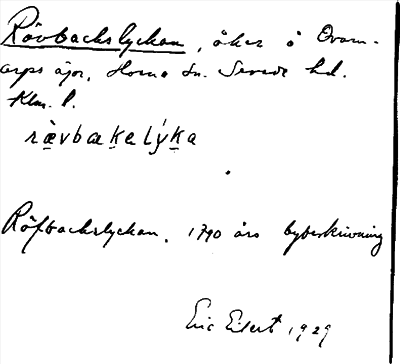 Rävbackslyckan, åker å Ovan-
arps ägor, Horns sn. Sevede hd.
Klm. l.
rävbakalyka
Räfbackslyckan. 1790 års bybeskrivning
Eric Elfert 1929